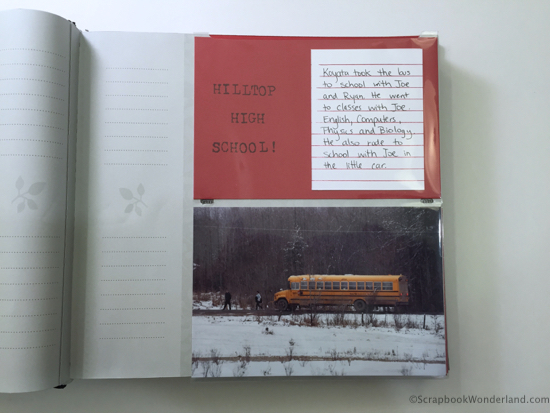 HILLTOP
HIGH
SCHOOL!
Koyata took the bus
to school with Joe
and Ryan. He went
to classes with Joe.
English, Computers,
Physics and Biology.
He also rode to
school with Joe in
the little car.
©ScrapbookWonderland.com